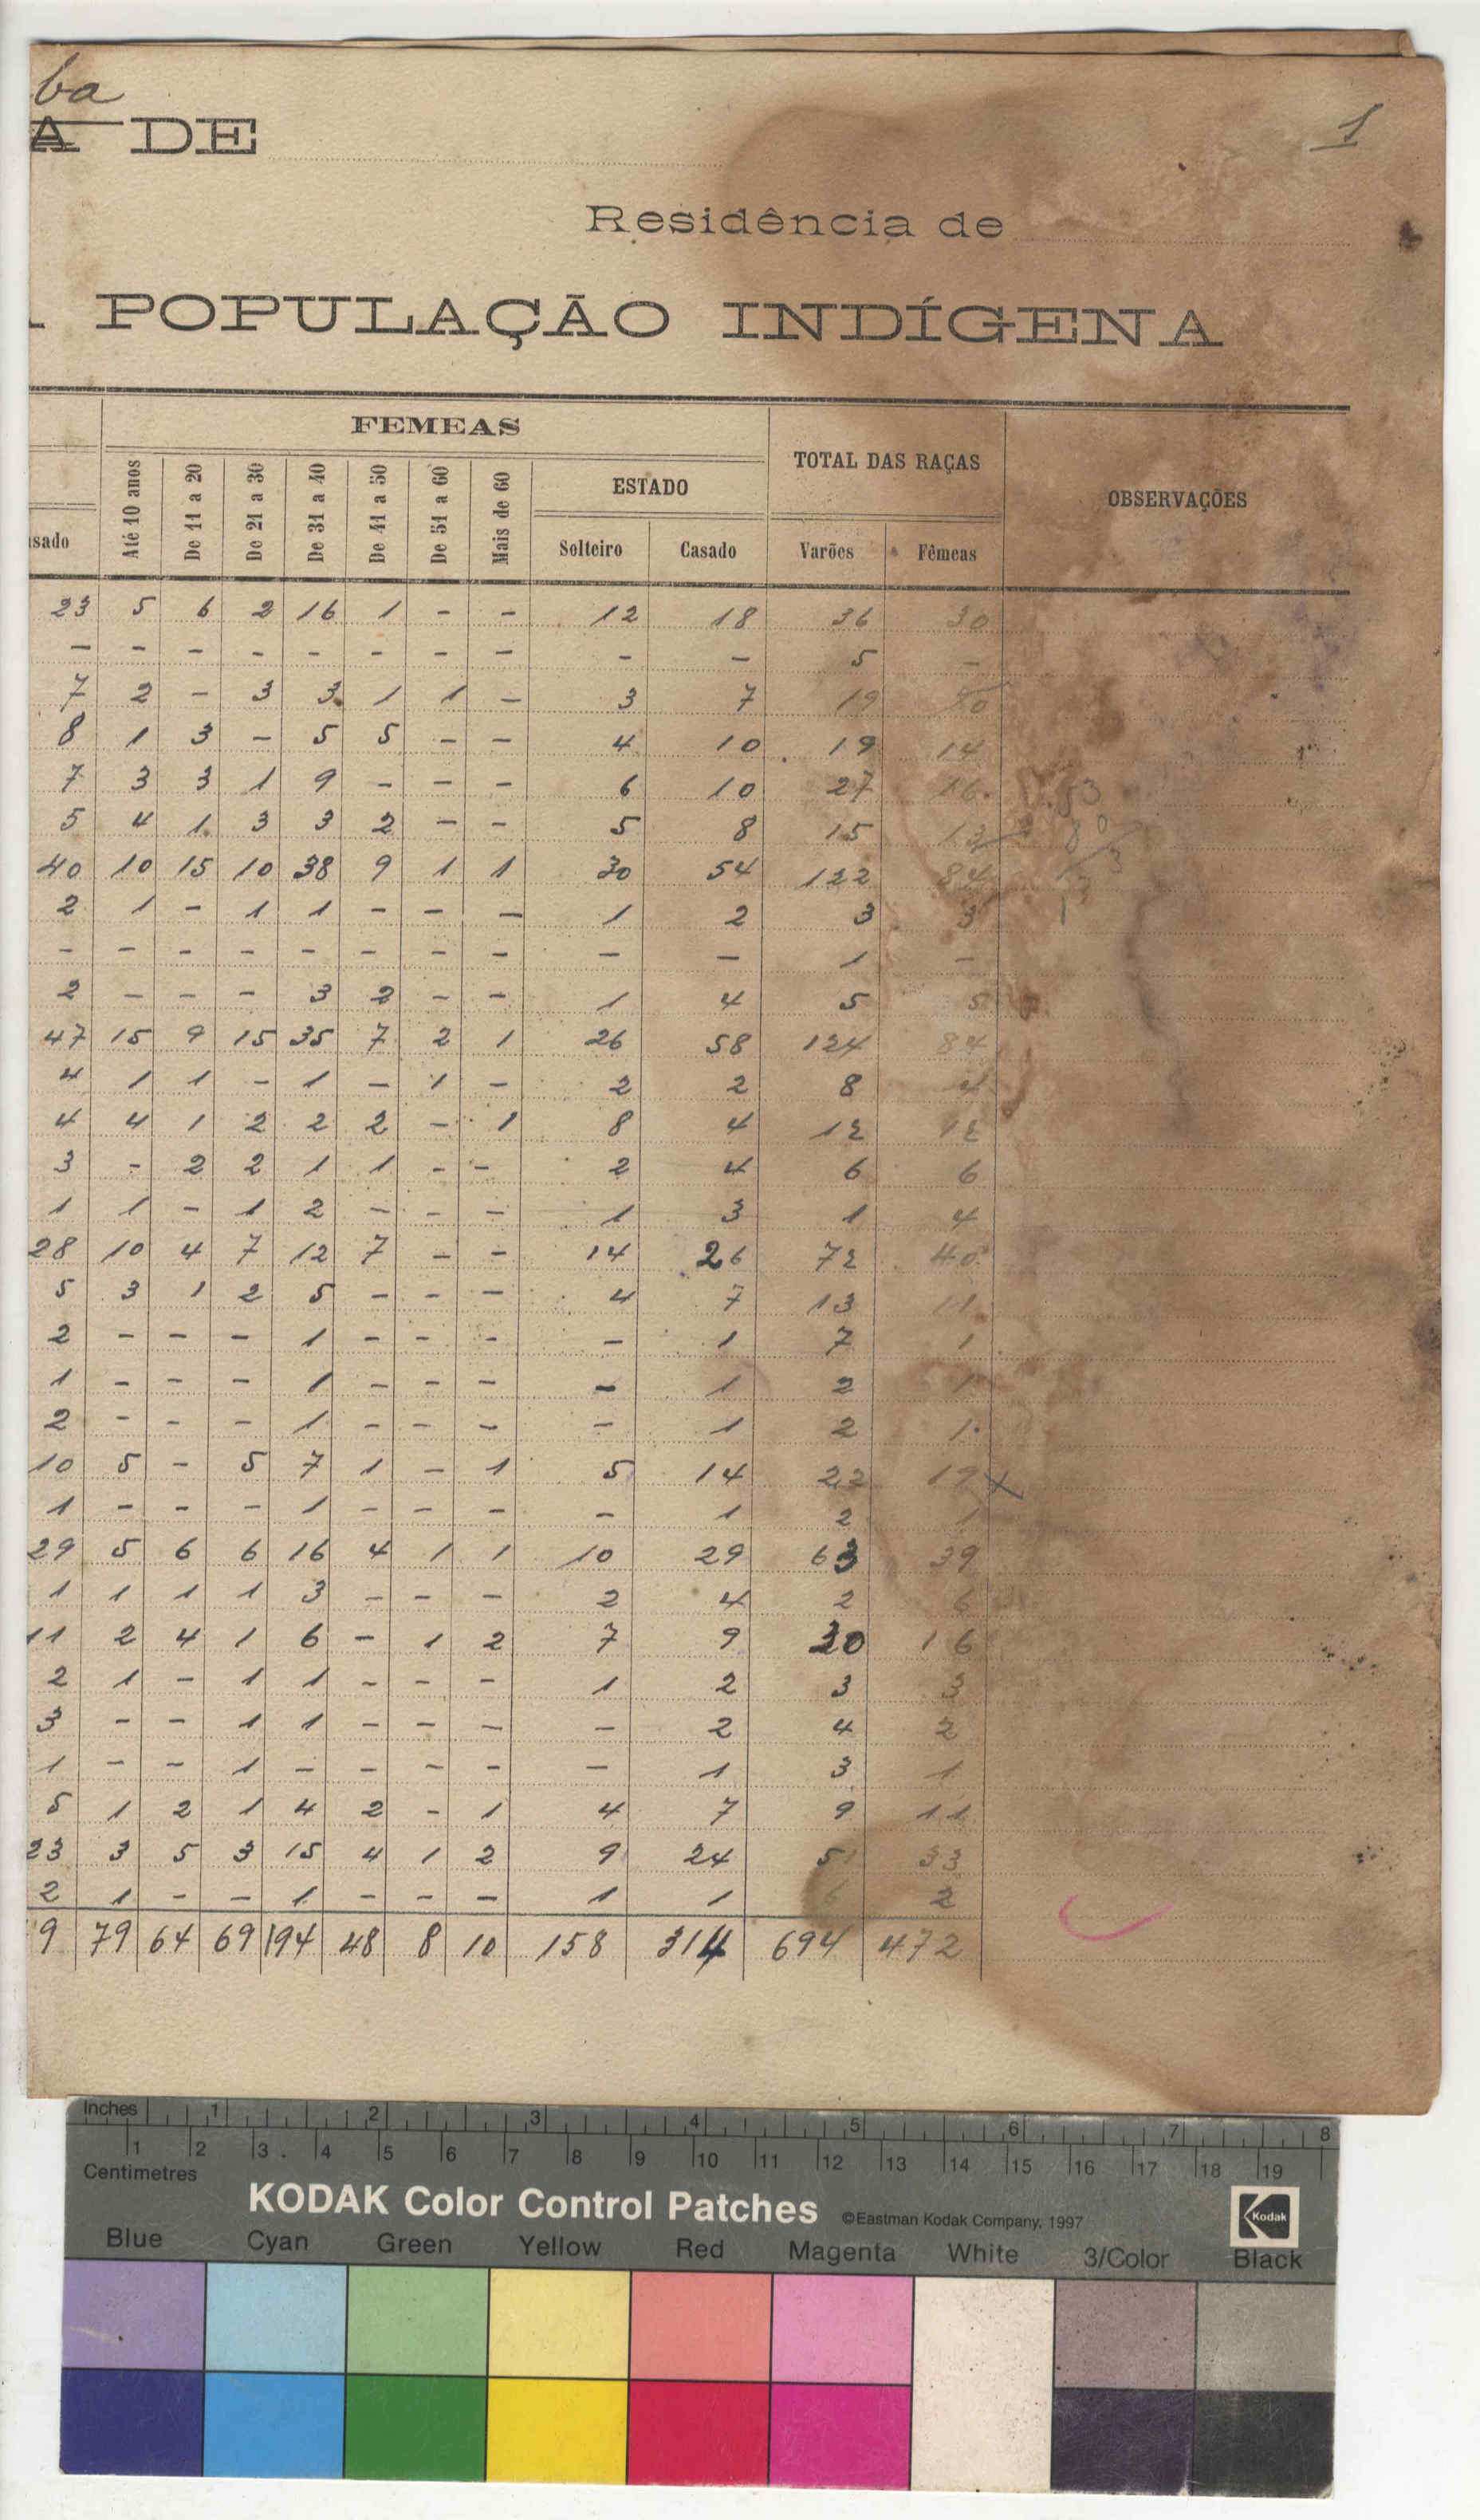 ba
A DE
1
Residência de
POPULAÇÃO INDÍGENA
FEMEAS
TOTAL DAS RAÇAS
OBSERVAÇÕES
Até 10 anos De 11 a 20 De 21 a 30 De 31 a 40 De 41 a 50 De 51 a 60 Mais de 60
ESTADO
sado Solteiro Casado Varões Fêmeas
23 5 6 2 16 1 - - 12 18 36 30
- - - - - - - - - - 5 -
7 2 - 3 3 1 1 - 3 7 19
8 1 3 - 5 5 - - 4 10 19 14
7 3 3 1 9 - - - 6 10 27 16
5 4 1 3 3 2 - - 5 8 15 13
40 10 15 10 38 9 1 1 30 54 122 84
2 1 - 1 1 - - - 1 2 3 3
- - - - - - - - - - 1 -
2 - - - 3 2 - - 1 4 5 5
47 15 9 15 35 7 2 1 26 58 124 84
4 1 1 - 1 - 1 - 2 2 8 4
4 4 1 2 2 2 - 1 8 4 12 12
3 - 2 2 1 1 - - 2 4 6 6
1 1 - 1 2 - - - 1 3 1 4
28 10 4 7 12 7 - - 14 26 72 40
5 3 1 2 5 - - - 4 7 13 11
2 - - - 1 - - - - 1 7 1
1 - - - 1 - - - - 1 2 1
2 - - - 1 - - - - 1 2 1
10 5 - 5 7 1 - 1 5 14 22 19 x
1 - - - 1 - - - - 1 2 1
29 5 6 6 16 4 1 1 10 29 63 39
1 1 1 1 3 - - - 2 4 2 6
11 2 4 1 6 - 1 2 7 9 30 16
2 1 - 1 1 - - - 1 2 3 3
3 - - 1 1 - - - - 2 4 2
1 - - 1 - - - - - 1 3 1
5 1 2 1 4 2 - 1 4 7 9 11
23 3 5 3 15 4 1 2 9 24 51 33
2 1 - - 1 - - - 1 1 6 2
9 79 64 69 194 48 8 10 158 314 694 472
Inches 1 2 3 4 5 6 7 8
1 2 3 4 5 6 7 8 9 10 11 12 13 14 15 16 17 18 19
Centimetres
KODAK Color Control Patches ©Eastman Kodak Company, 1997
Kodak
Blue Cyan Green Yellow Red Magenta White 3/Color Black